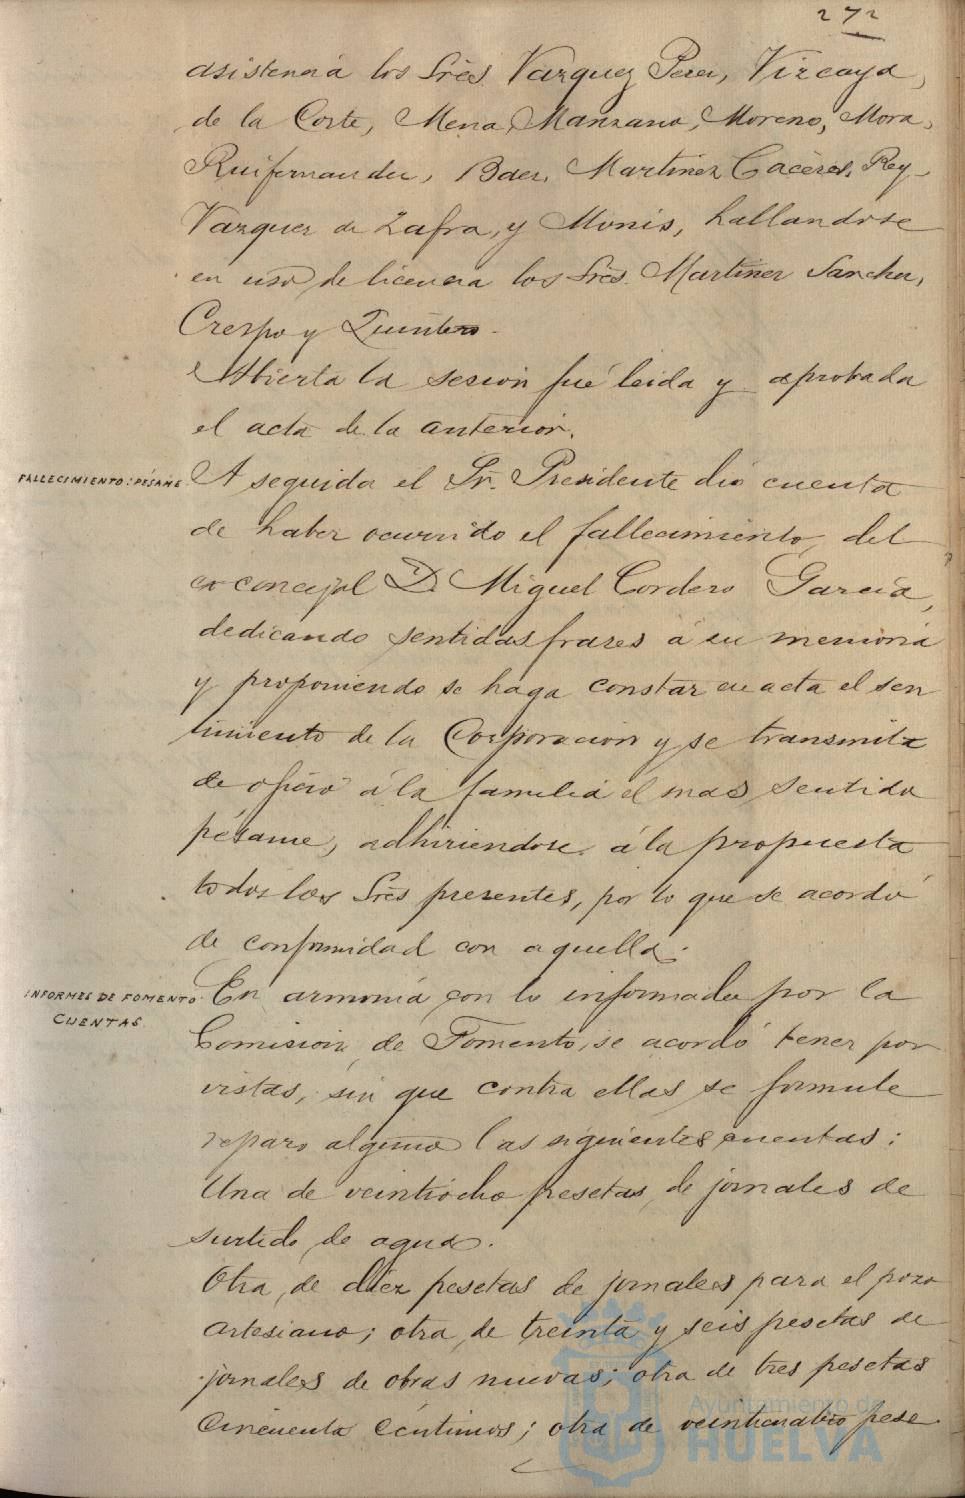 272
asistencia los Sres. Vazquez Perez, Vizcaya,
de la Corte, Mena, Manzano, Moreno, Mora,
Ruifernandez, Baez, Martinez Cáceres, Rey,
Vazquez de Zafra, y Monis, hallandose
en uso de licencia los Sres. Martinez Sanchez,
Crespo y Quintero.
Abierta la sesion fué leida y aprobada
el acta de la anterior.
FALLECIMIENTO: PÉSAME.
A seguida el Sr. Presidente dió cuenta
de haber ocurrido el fallecimiento del
ex concejal D. Miguel Cordero Garcia,
dedicando sentidas frases á su memoria
y proponiendo se haga constar en acta el sen
timiento de la Corporacion y se transmita
de oficio á la familia el mas sentido
pésame, adhiriendose á la propuesta
todos los Sres presentes, por lo que se acordó
de conformidad con aquella.
INFORMES DE FOMENTO.
CUENTAS
En armonia con lo informado por la
Comision de Fomento, se acordó tener por
vistas, sin que contra ellas se formule
reparo alguno las siguientes cuentas:
Una de veintiocho pesetas de jornales de
surtido de agua.
Otra de diez pesetas de jornales para el pozo
artesiano; otra de treinta y seis pesetas de
jornales de obras nuevas; otra de tres pesetas
cincuenta céntimos; otra de veinticuatro pese
Ayuntamiento de
HUELVA